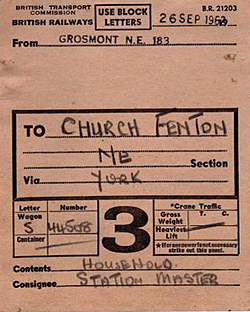 BRITISH TRANSPORT COMMISSION
BRITISH RAILWAYS
USE BLOCK LETTERS
B.R. 21203
26 SEP 1962
From GROSMONT N.E. 183
TO CHURCH FENTON
NE Section
Via YORK
Letter Number
Wagon
S 44508
Container
3
*Crane Traffic
T. C.
Gross Weight
Heaviest Lift
*If crane power not necessary strike out this panel.
Contents HOUSEHOLD
Consignee STATION MASTER